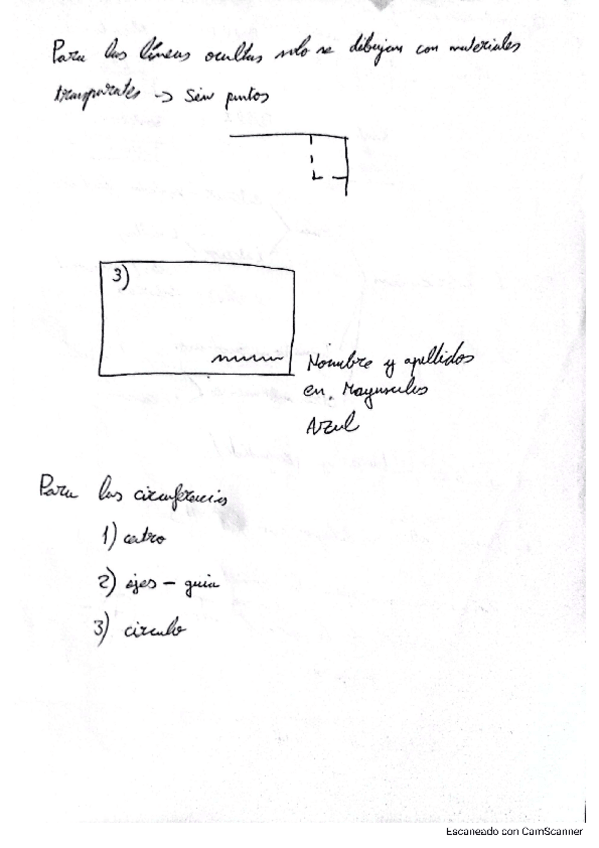 Para las líneas ocultas solo se dibujan con materiales
transparentes -> Sin puntos
3)
Nombre y apellidos
en Mayusculas
Azul
Para las circunferencias
1) centro
2) ejes - guia
3) circulo
Escaneado con CamScanner